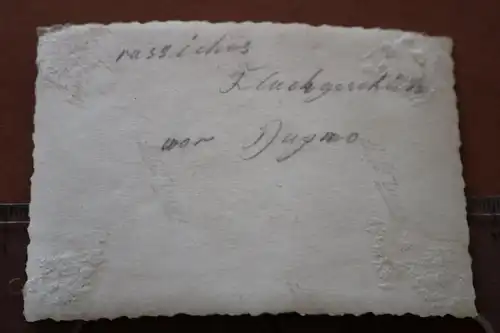 russiches
Flachgeschütz
vor Dugno